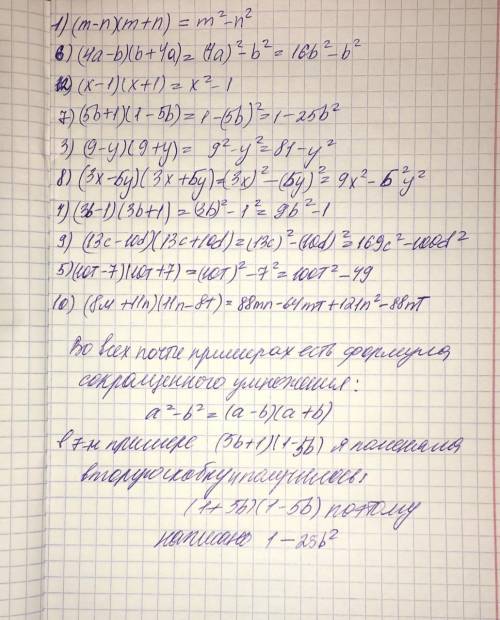 1) (m-n)(m+n) = m²-n²
6) (4a-b)(b+4a) = (4a)²-b² = 16b²-b²
12) (x-1)(x+1) = x²-1
7) (5b+1)(1-5b) = 1-(5b)² = 1-25b²
3) (9-y)(9+y) = 9²-y² = 81-y²
8) (3x-5y)(3x+5y) = (3x)²-(5y)² = 9x²-5²y²
4) (3b-1)(3b+1) = (3b)²-1² = 9b²-1
9) (13c-10d)(13c+10d) = (13c)²-(10d)² = 169c²-100d²
5) (10т-7)(10т+7) = (10т)²-7² = 100т²-49
10) (8м+11n)(11n-8т) = 88mn-64mт+121n²-88nт
Во всех почти примерах есть формула
сокращенного умножения:
a²-b² = (a-b)(a+b)
в 7-м примере (5b+1)(1-5b) я поменяла
вторую скобку и получилось:
(1+5b)(1-5b) поэтому
написано 1-25b²